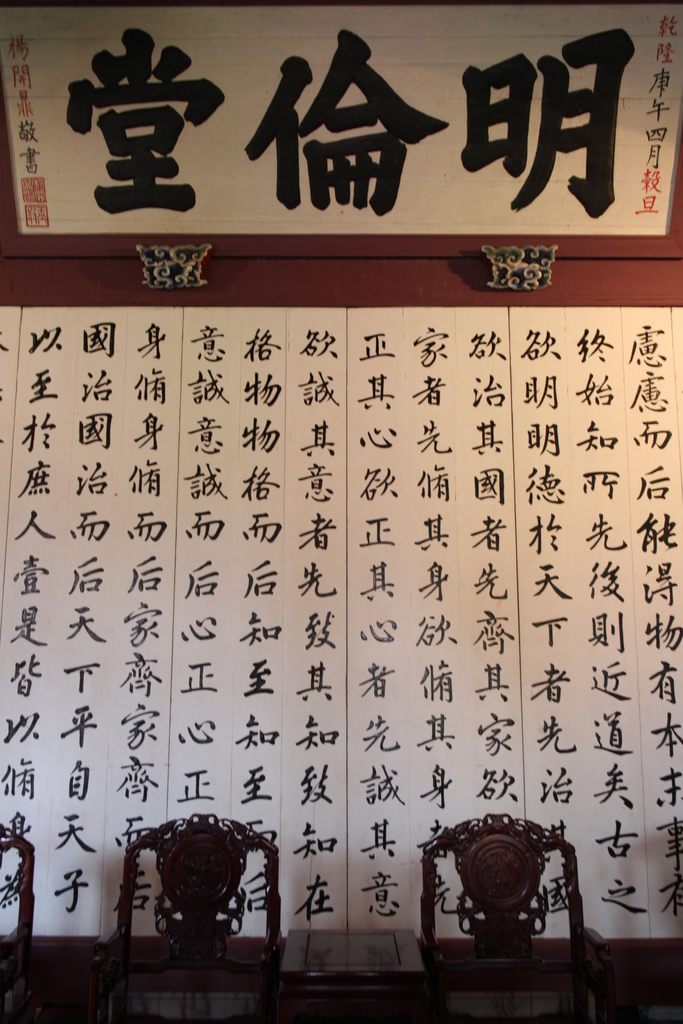 乾隆庚午四月穀旦
明倫堂
楊開鼎敬書
慮慮而后能得物有本末事有
終始知所先後則近道矣古之
欲明明德於天下者先治其國
欲治其國者先齊其家欲
家者先脩其身欲脩其身者先
正其心欲正其心者先誠其意
欲誠其意者先致其知致知在
格物物格而后知至知至而后
意誠意誠而后心正心正
身脩身脩而后家齊家齊而后
國治國治而后天下平自天子
以至於庶人壹是皆以脩身為